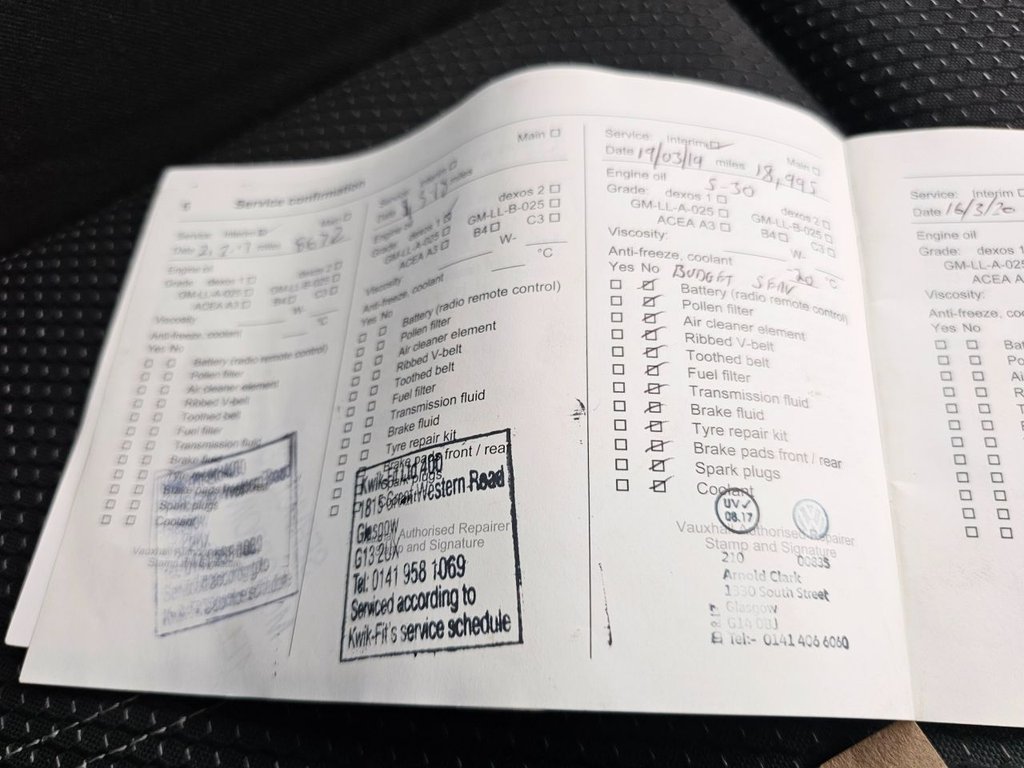 Service confirmation
Main
Service: Interim
Date 2. 2. 17 miles 8672
Engine oil
dexos 2
Grade: dexos 1
GM-LL-A-025 GM-LL-B-025
ACEA A3 B4 C3
Viscosity W-
Anti-freeze, coolant °C
Yes No
Battery (radio remote control)
Pollen filter
Air cleaner element
Ribbed V-belt
Toothed belt
Fuel filter
Transmission fluid
Brake fluid
Spark plugs
Coolant
Main
Service: Interim
Date miles
Engine oil
dexos 2
Grade: dexos 1
GM-LL-A-025 GM-LL-B-025
ACEA A3 B4 C3
Viscosity W-
Anti-freeze, coolant °C
Yes No
Battery (radio remote control)
Pollen filter
Air cleaner element
Ribbed V-belt
Toothed belt
Fuel filter
Transmission fluid
Brake fluid
Tyre repair kit
Brake pads front / rear
Spark plugs
Western Road
Glasgow
Authorised Repairer
G13 2UX
Stamp and Signature
Tel: 0141 958 1069
Serviced according to
Kwik-Fit's service schedule
Service: Interim
Main
Date 19/03/19 miles 18,995
Engine oil 5-30
Grade: dexos 1 dexos 2
GM-LL-A-025 GM-LL-B-025
ACEA A3 B4 C3
Viscosity: W-
Anti-freeze, coolant -20 °C
Yes No BUDGET SERV
Battery (radio remote control)
Pollen filter
Air cleaner element
Ribbed V-belt
Toothed belt
Fuel filter
Transmission fluid
Brake fluid
Tyre repair kit
Brake pads front / rear
Spark plugs
Coolant
UV
08.17
Vauxhall Authorised Repairer
Stamp and Signature
210 00835
Arnold Clark
1330 South Street
Glasgow
G14 0BJ
Tel:- 0141 406 6060
Service: Interim
Date 16/3/20
Engine oil
Grade: dexos 1
GM-LL-A-025
ACEA A
Viscosity:
Anti-freeze, coo
Yes No
Bat
Po
Ai
R
T